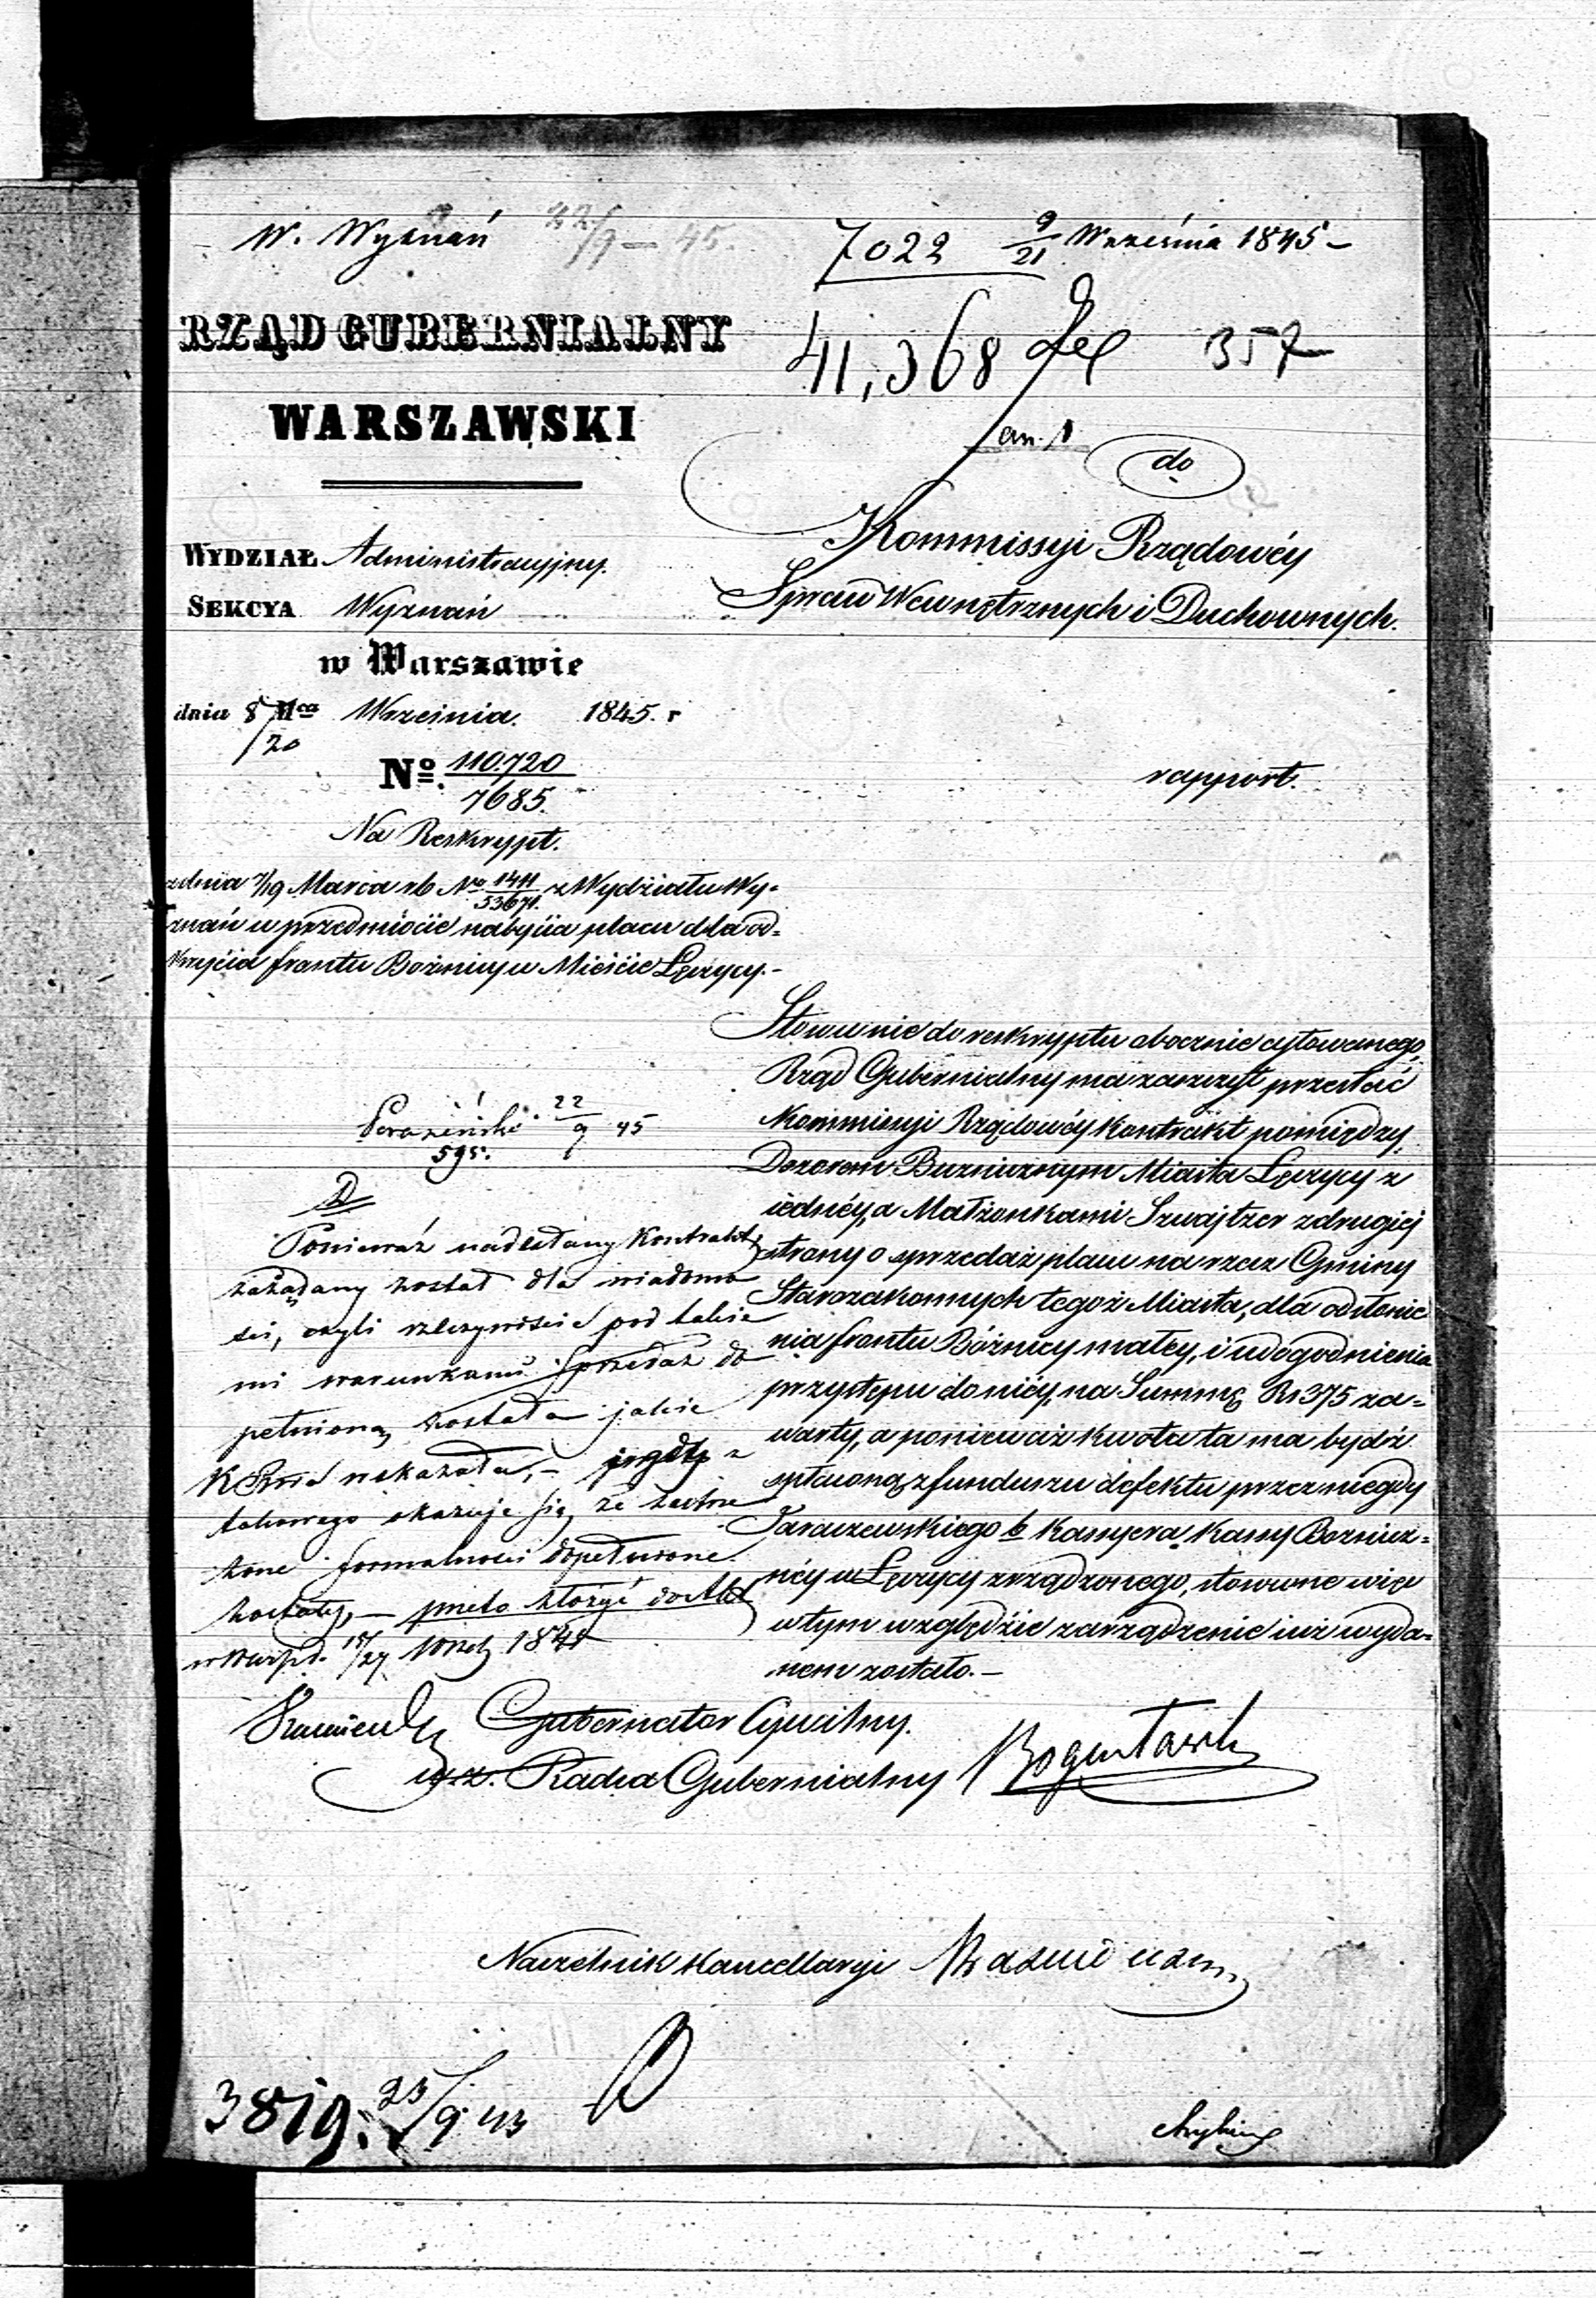 W. Wyznań 22/9 – 45.
7022 9/21 Września 1845 –
41,368 357
an. 1
RZĄD GUBERNIALNY
WARSZAWSKI
do
Kommissyi Rządowéy
Spraw Wewnętrznych i Duchownych.
WYDZIAŁ Administracyjny.
SEKCYA Wyznań
w Warszawie
dnia 8/20 Mca Września. 1845. r
No. 110.720/7685.
rapport.
Na Reskrypt.
z dnia 7/19 Marca rb No 1411/53671. z Wydziału Wy=
znań w przedmiocie nabycia placu dla od=
krycia frontu Bożnicy w Mieście Łęczycy. –
Stosownie do reskryptu obocznie cytowanego,
Rząd Gubernialny ma zaszczyt przesłać
Kommissyi Rządowéy Kontrakt pomiędzy
Dozorem Bużnicznym Miasta Łęczycy z
iednéy, a Małżonkami Szwajtzer z drugiéj
strony o sprzedaż placu na rzecz Gminy
Starozakonnych tegoż Miasta, dla odsłonie
nia frontu Bóżnicy małey, i udogodnienia
przystępu do niéy, na Summę Rs 375 za=
warty, a ponieważ kwota ta ma bydź
spłaconą z funduszu defektu przez niegdy
Taraszewskiego b Kassyera Kassy Bożnicz=
néy w Łęczycy zrządzonego, stosowne więc
w tym względzie zarządzenie iuż wyda=
nem zostało. –
22/9 45
595.
D
Ponieważ nadesłany Kontrakt
zażądany został dla wiadomo
ści, czyli rzeczywiście pod takie
mi warunkami sprzedaż do
pełnioną została jakie
K R wskazała, – przeto z
takowego okazuje się, że
formalności dopełnione
zostały, – przeto złożyć do Akt
w Warsz d. 15/27 1845
Gubernator Cywilny.
w z. Radca Gubernialny Bogusławski
Naczelnik Kancellaryi
3819. 25/9 45